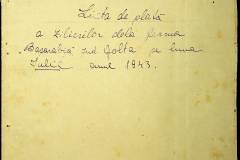 Lista de plată
a zilierilor dela ferma
Basarabia jud Golta pe luna
Iulie anul 1943.